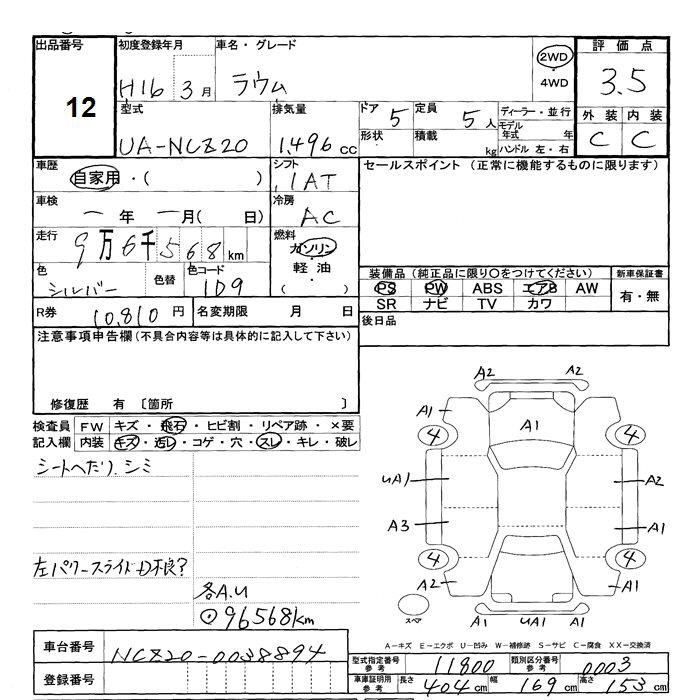 出品番号 初度登録年月 車名・グレード 2WD ・ 4WD 評価点
12 H16 3月 ラウム 3.5
型式 排気量 ドア 5 定員 5人 ディーラー・並行 外装 内装
UA-NCZ20 1,496 cc 形状 積載 kg モデル年式 年 C C
ハンドル 左・右
車歴 自家用・( ) シフト IAT セールスポイント (正常に機能するものに限ります)
車検 ー年 ー月( 日) 冷房 AC
走行 9万6千568km 燃料 ガソリン
軽油
( )
色 シルバー 色替 色コード 1D9 装備品(純正品に限り○をつけてください) 新車保証書
PS PW ABS エアB AW 有・無
SR ナビ TV カワ
R券 10,810円 名変期限 月 日 後日品
注意事項申告欄(不具合内容等は具体的に記入して下さい)
修復歴 有 〔箇所 〕
検査員 FW キズ・飛石・ヒビ割・リペア跡・×要
記入欄 内装 キズ・汚レ・コゲ・穴・スレ・キレ・破レ
シートヘたり、シミ
左パワースライドD不良?
各A.U
⊙96568km
A2 A2
A1 A1 A1
4 4
UA1 A2
A3 A1
4 4
A2 A1
スペア A1 UA1 A1
A-キズ E-エクボ U-凹み W-補修跡 S-サビ C-腐食 XX-交換済
車台番号 NCZ20-0038894 型式指定番号 参考 11800 類別区分番号 参考 0003
登録番号 車庫証明用 参考 長さ 404cm 幅 169cm 高さ 153cm